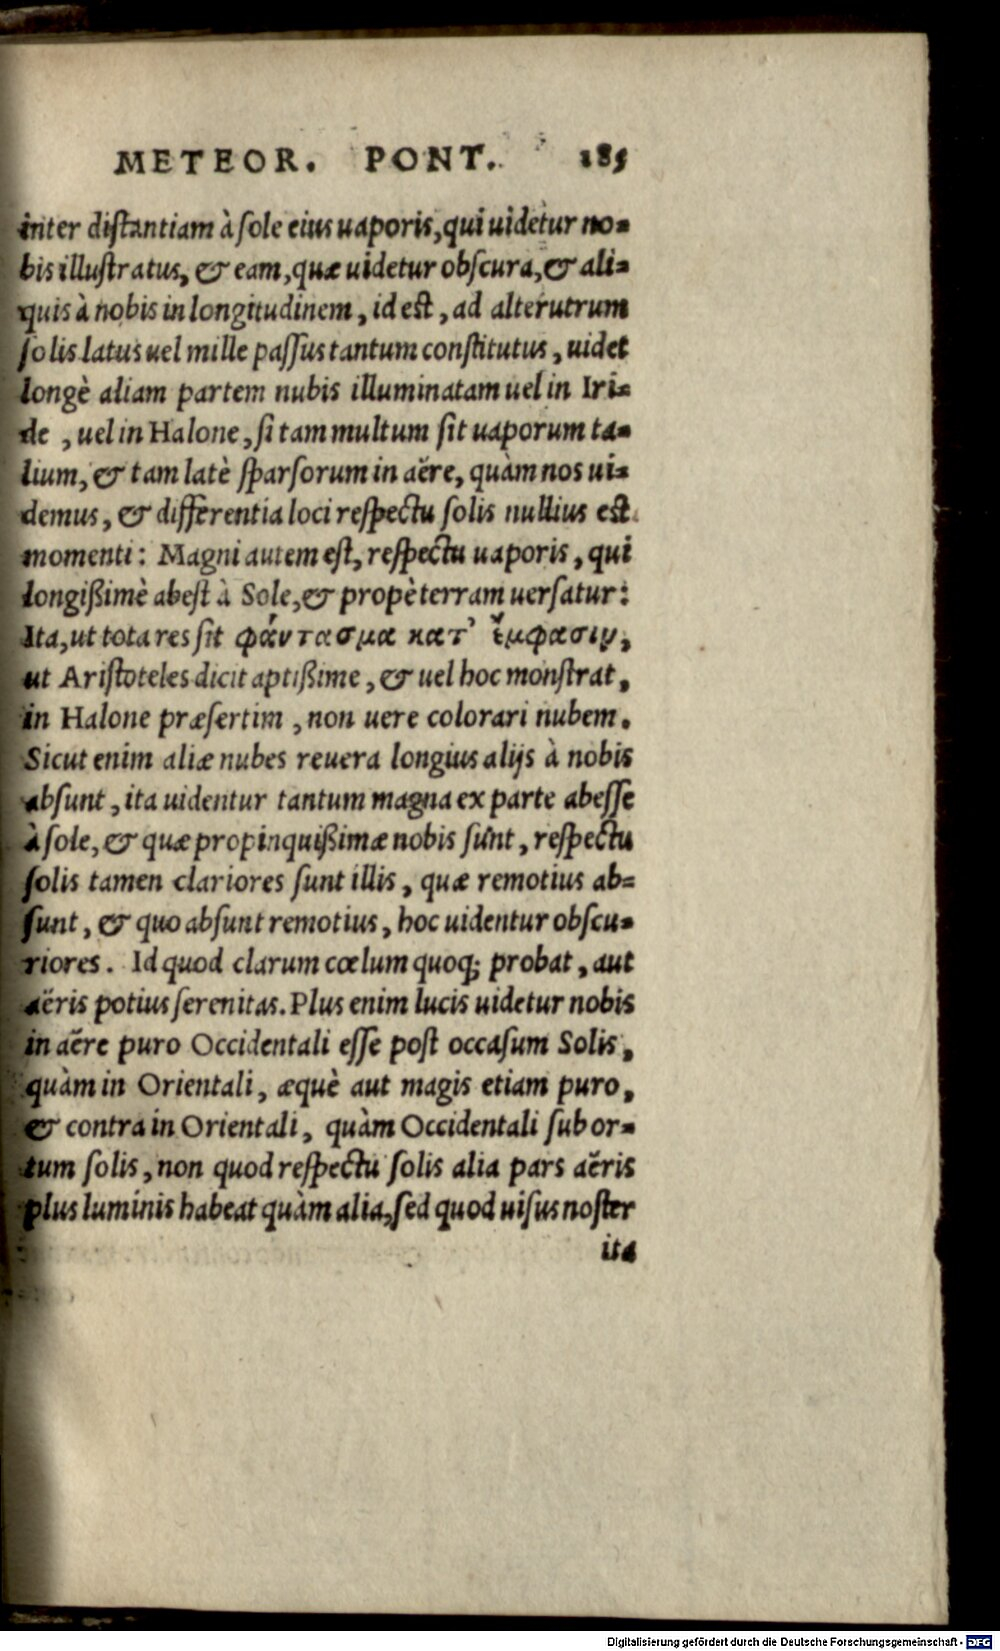 METEOR. PONT. 185
inter distantiam à sole eius uaporis, qui uidetur no-
bis illustratus, & eam, quæ uidetur obscura, & ali-
quis à nobis in longitudinem, id est, ad alterutrum
solis latus uel mille passus tantum constitutus, uidet
longè aliam partem nubis illuminatam uel in Iri-
de, uel in Halone, si tam multum sit uaporum ta-
lium, & tam latè sparsorum in aëre, quàm nos ui-
demus, & differentia loci respectu solis nullius est
momenti: Magni autem est, respectu uaporis, qui
longißimè abest à Sole, & propè terram uersatur:
Ita, ut tota res sit φάντασμα κατ' ἔμφασιν,
ut Aristoteles dicit aptißime, & uel hoc monstrat,
in Halone præsertim, non uere colorari nubem.
Sicut enim aliæ nubes reuera longius alijs à nobis
absunt, ita uidentur tantum magna ex parte abesse
à sole, & quæ propinquißimæ nobis sunt, respectu
solis tamen clariores sunt illis, quæ remotius ab-
sunt, & quo absunt remotius, hoc uidentur obscu-
riores. Id quod clarum cœlum quoq; probat, aut
aëris potius serenitas. Plus enim lucis uidetur nobis
in aëre puro Occidentali esse post occasum Solis,
quàm in Orientali, æquè aut magis etiam puro,
& contra in Orientali, quàm Occidentali sub or-
tum solis, non quod respectu solis alia pars aëris
plus luminis habeat quàm alia, sed quod uisus noster
ita
Digitalisierung gefördert durch die Deutsche Forschungsgemeinschaft - DFG